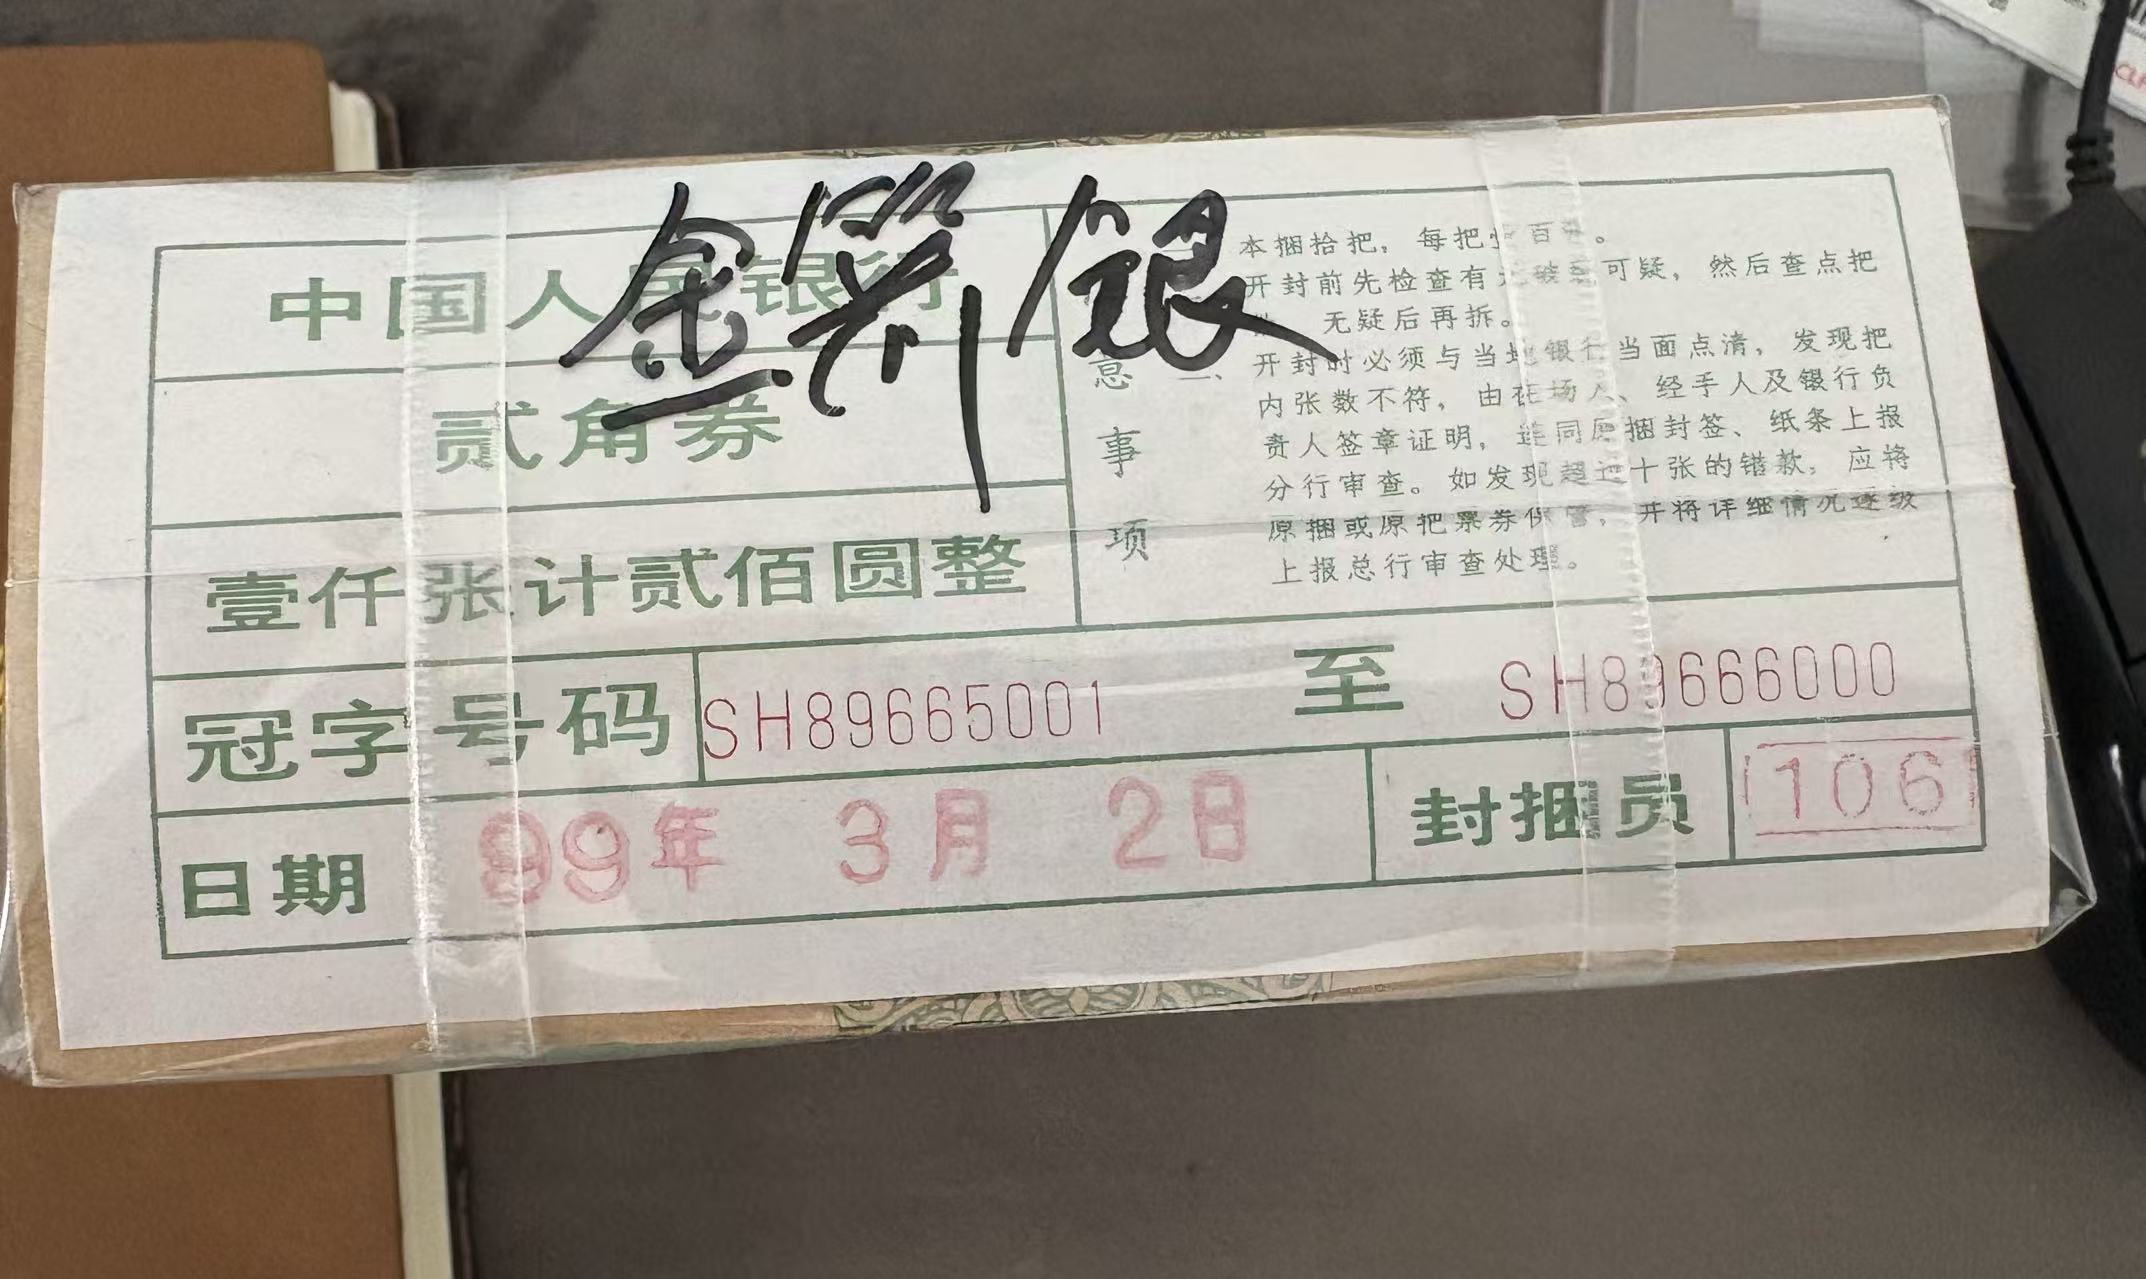 金箭银
中国人民银行
贰角券
壹仟张计贰佰圆整
意
事
项
本捆拾把，每把壹百张。
开封前先检查有无破绽可疑，然后查点把
无疑后再拆。
二、开封时必须与当地银行当面点清，发现把
内张数不符，由在场人、经手人及银行负
责人签章证明，连同原捆封签、纸条上报
分行审查。如发现超过十张的错款，应将
原捆或原把票券保管，并将详细情况逐级
上报总行审查处理。
冠字号码 SH89665001 至 SH89666000
日期 99年 3月 2日 封捆员 106